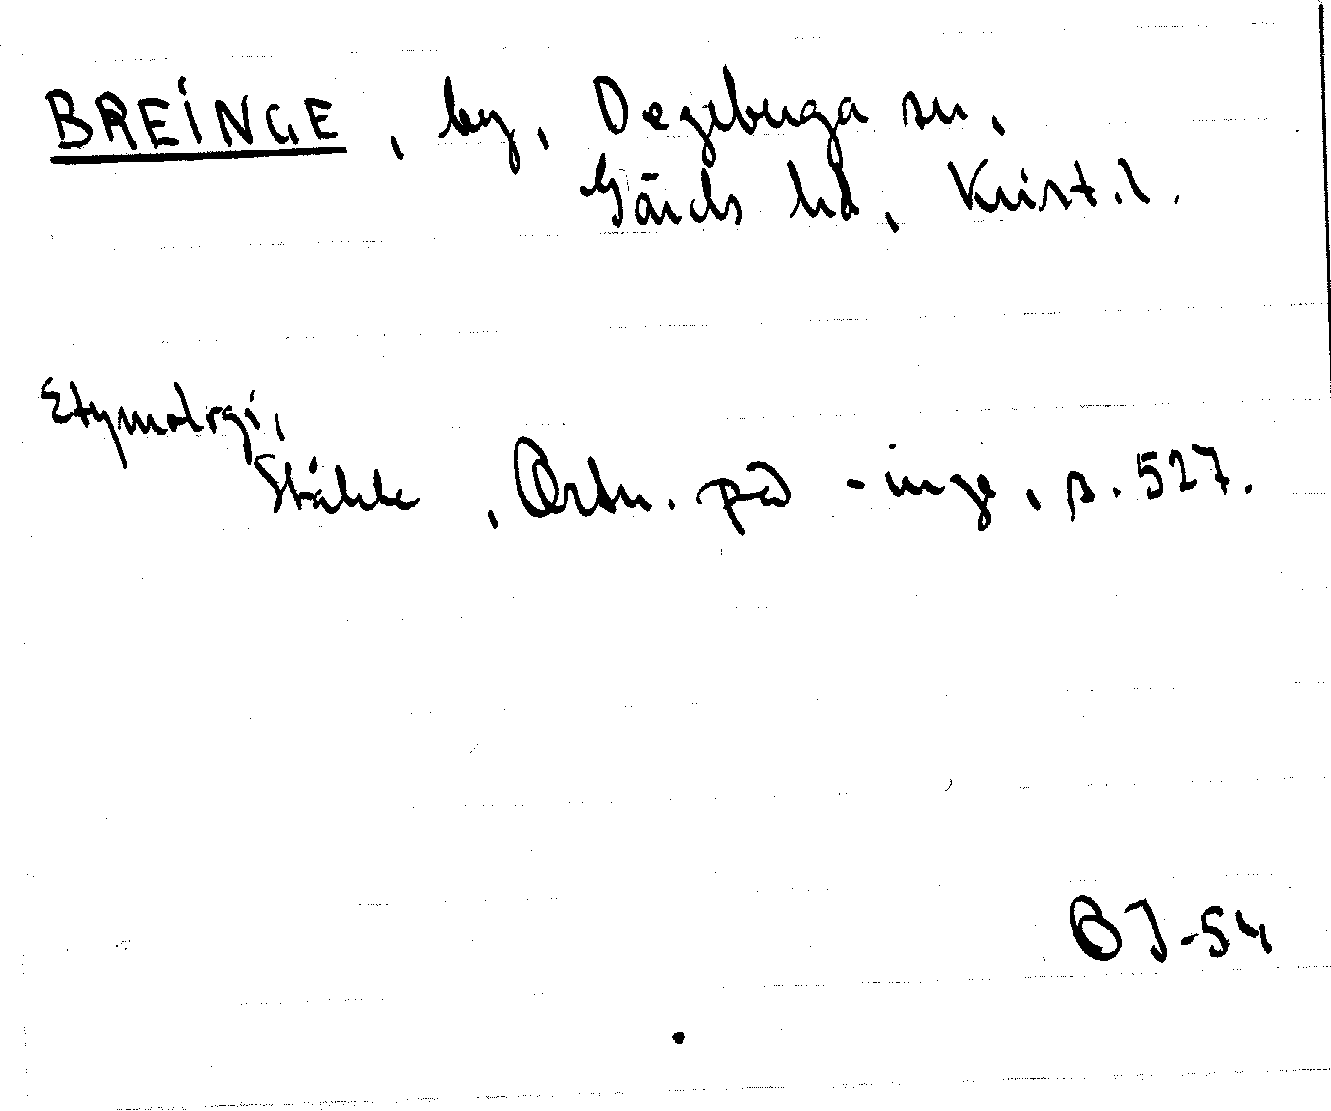 BREINGE, by, Degeberga sn,
Gärds hd, Krist.l.
Etymologi,
Ståhle, Ortn. på -inge, s. 527.
BJ-54